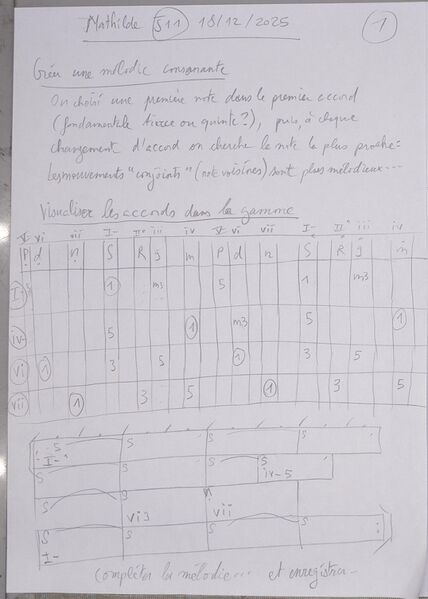 Mathilde S11 18/12/2025 1
Créer une mélodie consonante
On choisi une première note dans le premier accord
(fondamentale tierce ou quinte?), puis, à chaque
changement d'accord on cherche la note la plus proche:
Les mouvements "conjoints" (note voisines) sont plus mélodieux...
Visualiser les accords dans la gamme
V vi vii I- II° iii iv V vi vii I- II° iii iv
P d n S R g m P d n S R g m
I- 1 m3 5 1 m3
iv- 5 1 m3 5 1
vi 1 3 5 1 3 5
vii 1 3 5 1 3 5
S S S S
I-
S S S S
iv-5
S 3 n
vi3 vii
S S S S
I-
compléter la mélodie... et enregistrer...